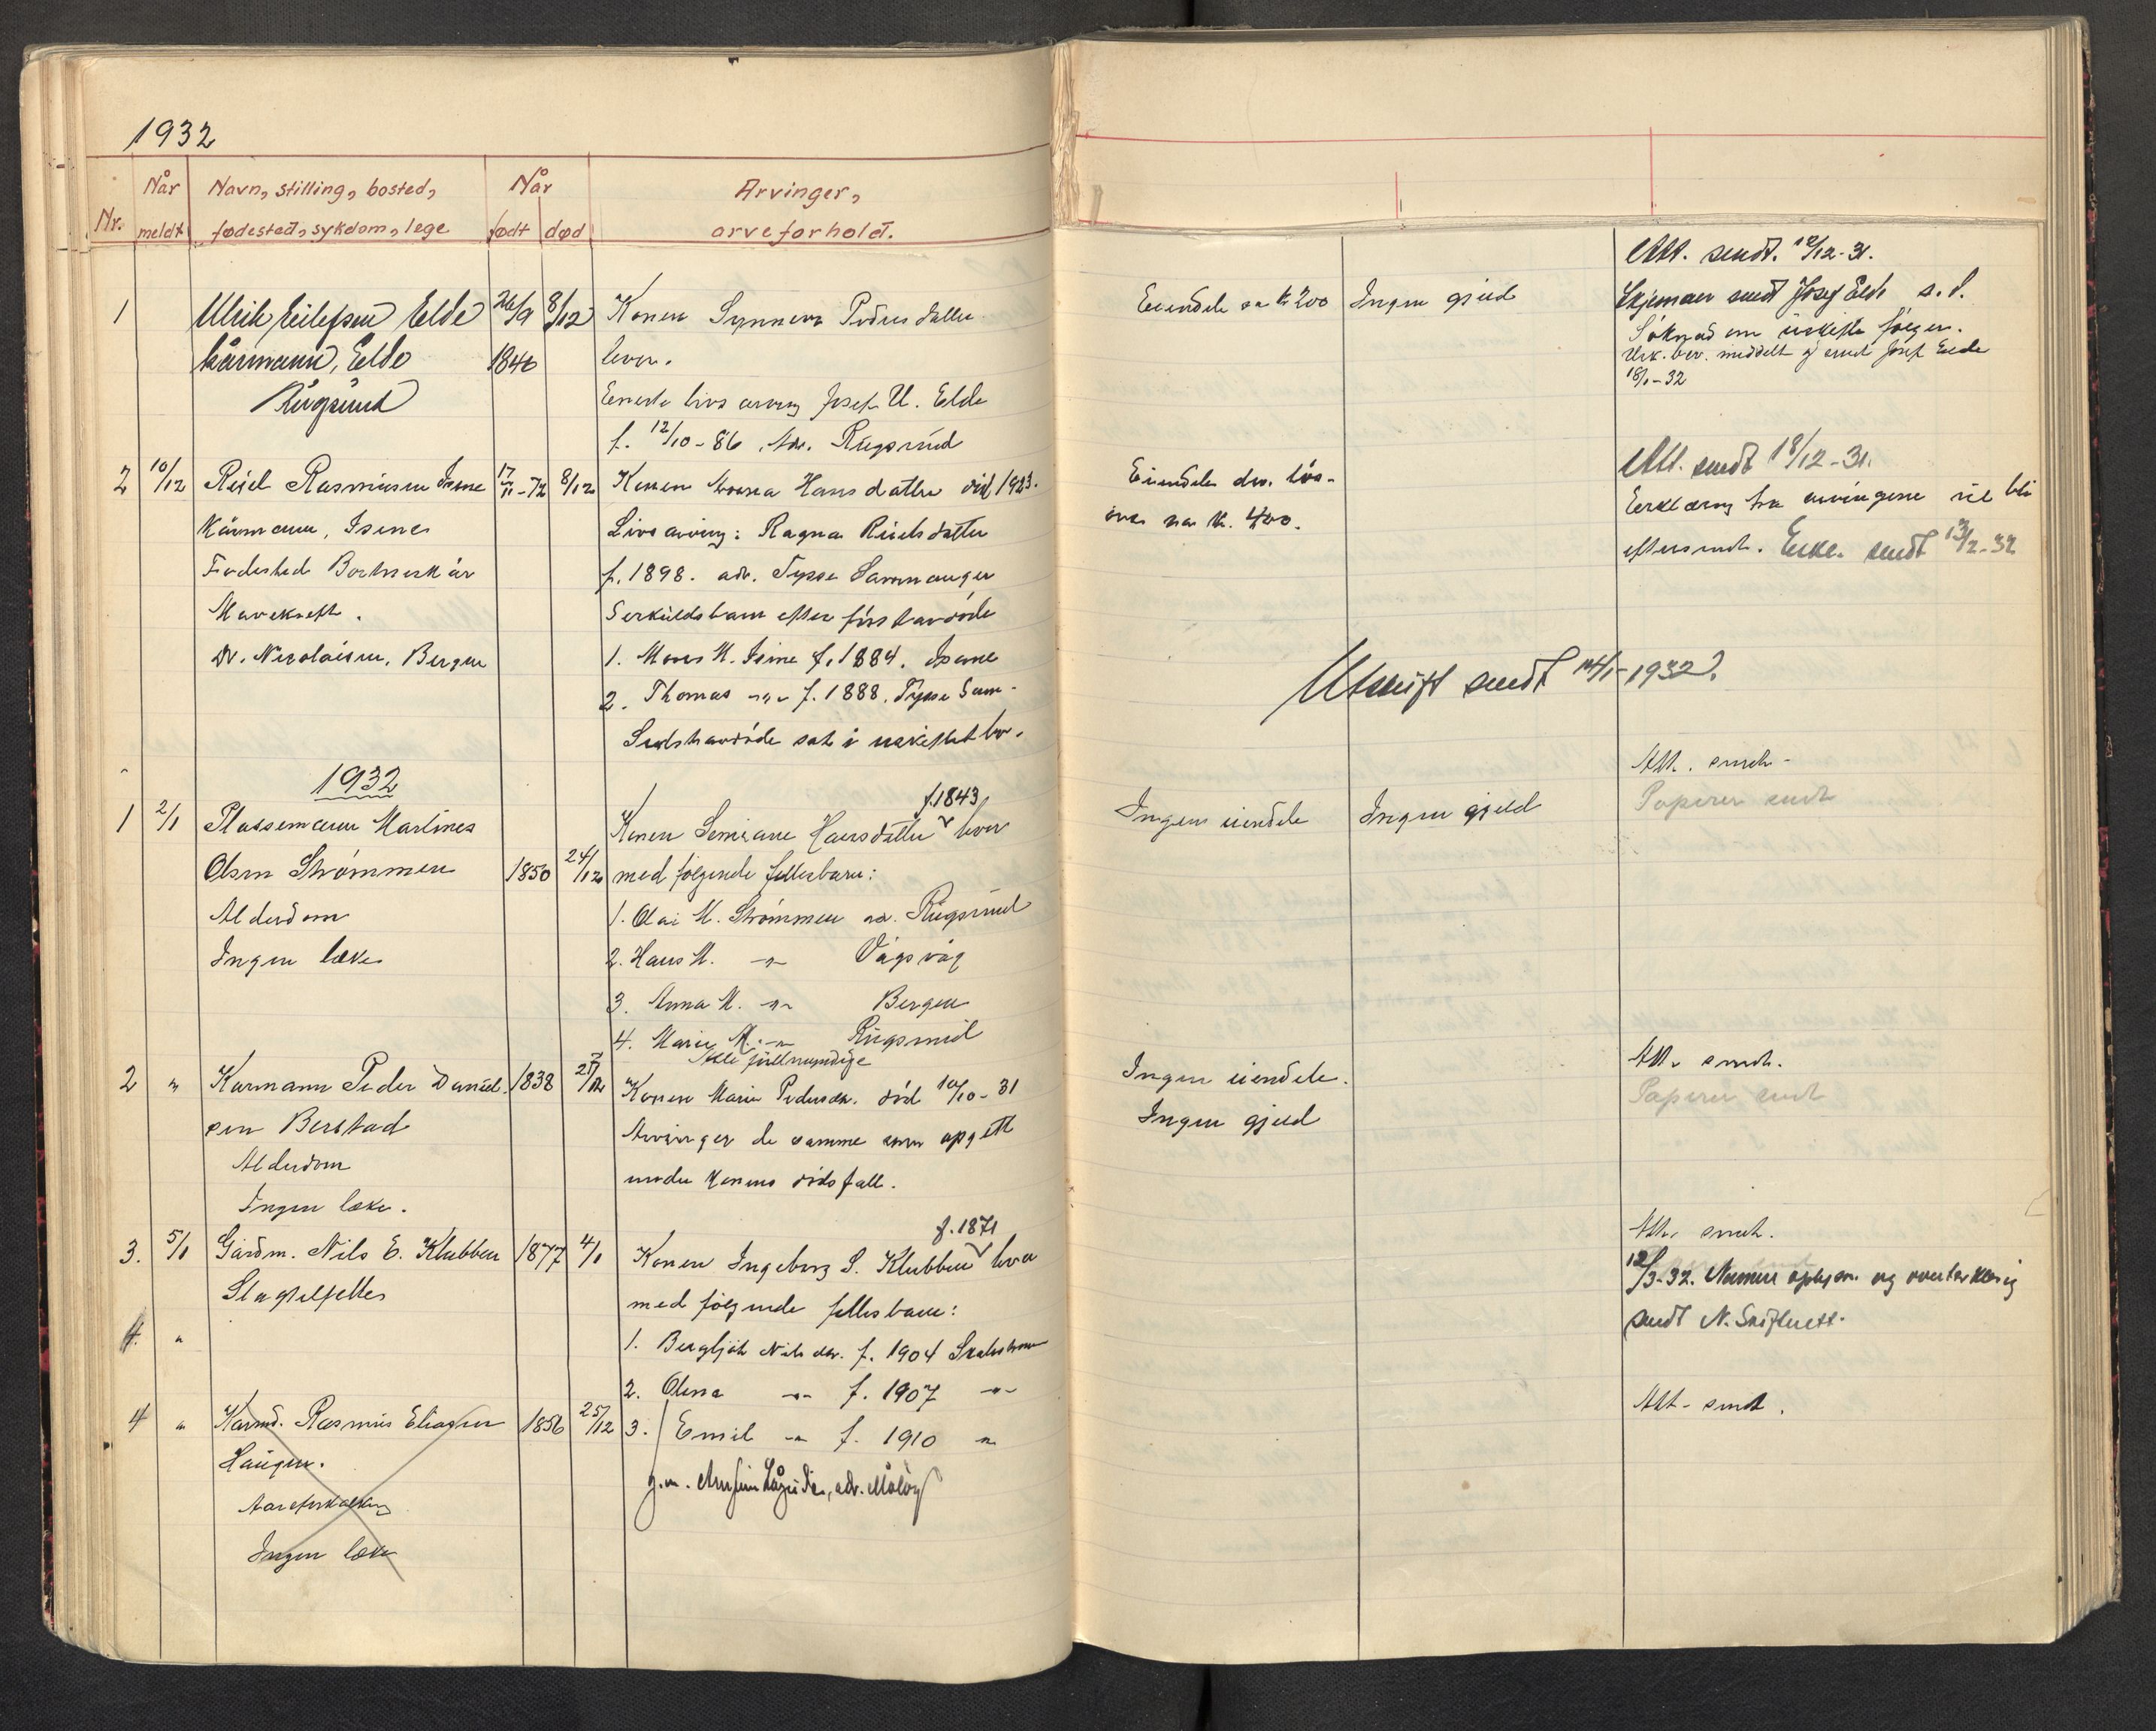 1932
Nr. Når meldt Navn, stilling, bosted, fødested, sykdom, lege Når født død Arvinger, arveforhold.
1 Ulrik Eilefsen Elde 26/9 8/12 Konen Synneva Pedersdatter
kårmann, Elde 1846 lever.
Rugsund Eneste livsarving Josef U. Elde
f. 12/10-86, Adr. Rugsund
2 10/12 Rasmussen Isene 17/11-72 8/12 Konen Hansdatter död 1923.
Kårmann, Isene Livsarving: Ragna
Födested f. 1898. adr. Tysse Samnanger
Mavekreft. Serkuldsbarn efter förstavdöde
Dr. Nicolaisen, Bergen 1. M. Isene f. 1884. Isene
2. Thomas -"- f. 1888. Tysse Sam-
Sistavdöde sat i uskiftet bo.
1932
f. 1843
1 2/1 Plassemann Martines Konen Hansdatter lever
Olsen Strömmen 1850 24/12 med følgende fellesbarn:
Alderdom 1. Olai M. Strömmen adr. Rugsund
Ingen læke 2. Hans M. -"- Vågsvåg
3. Anna M. -"- Bergen
4. Marie M. -"- Rugsund
Alle fullmyndige
2 " Karmann Peder Daniel- 1838 27/12 Konen Marie Pedersdtr. död 10/10-31
sen Berstad Arvinger de samme som opgitt
Alderdom under konens dödsfall.
Ingen læke.
f. 1871
3. 5/1 Gårdm. Nils E. Klubben 1877 4/1 Konen Ingeborg S. Klubben lever
Slagtilfelle med følgende fellesbarn:
4. " 1. Bergljot Nilsdtr. f. 1904
2. Olena -"- f. 1907 -"-
4 " Karmd. Rasmus Eliassen 1856 25/12 3. Emil -"- f. 1910 "
Haugen. g.m. adr. Måløy
Aareforkalkning
Ingen læke
Eiendele ca kr 200 Ingen gjeld Att. sendt. 18/12-31.
Skjemaer sendt Josef Elde s.d.
Söknad om uskifte følger.
Usk. bev. meddelt og sendt Josef Elde
18/1-32
Eiendele den lös-
öre ca kr. 400.
Att. sendt 18/12-31.
Erklæring fra arvingene vil bli
eftersendt. Erkl. sendt 13/2-32
Utskrift sendt 14/1-1932.
Att. sendt-
Ingen eiendele Ingen gjeld Papirer sendt
Ingen eiendele. Att. sendt.
Ingen gjeld Papirer sendt
Att. sendt.
12/3-32. Nermere oplysn. og
sendt N.
Att. sendt.